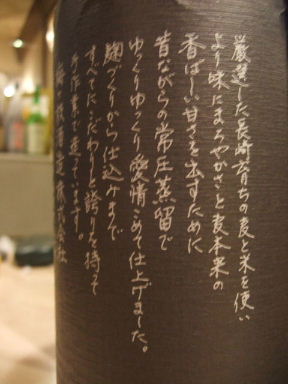 厳選した長崎育ちの麦と米を使い
より味にまろやかさと麦本来の
香ばしい甘さを出すために
昔ながらの常圧蒸留で
ゆっくりゆっくり愛情こめて仕上げました。
麹づくりから仕込みまで
すべてにこだわりと誇りを持って
手作業で造っています。
酒造株式会社